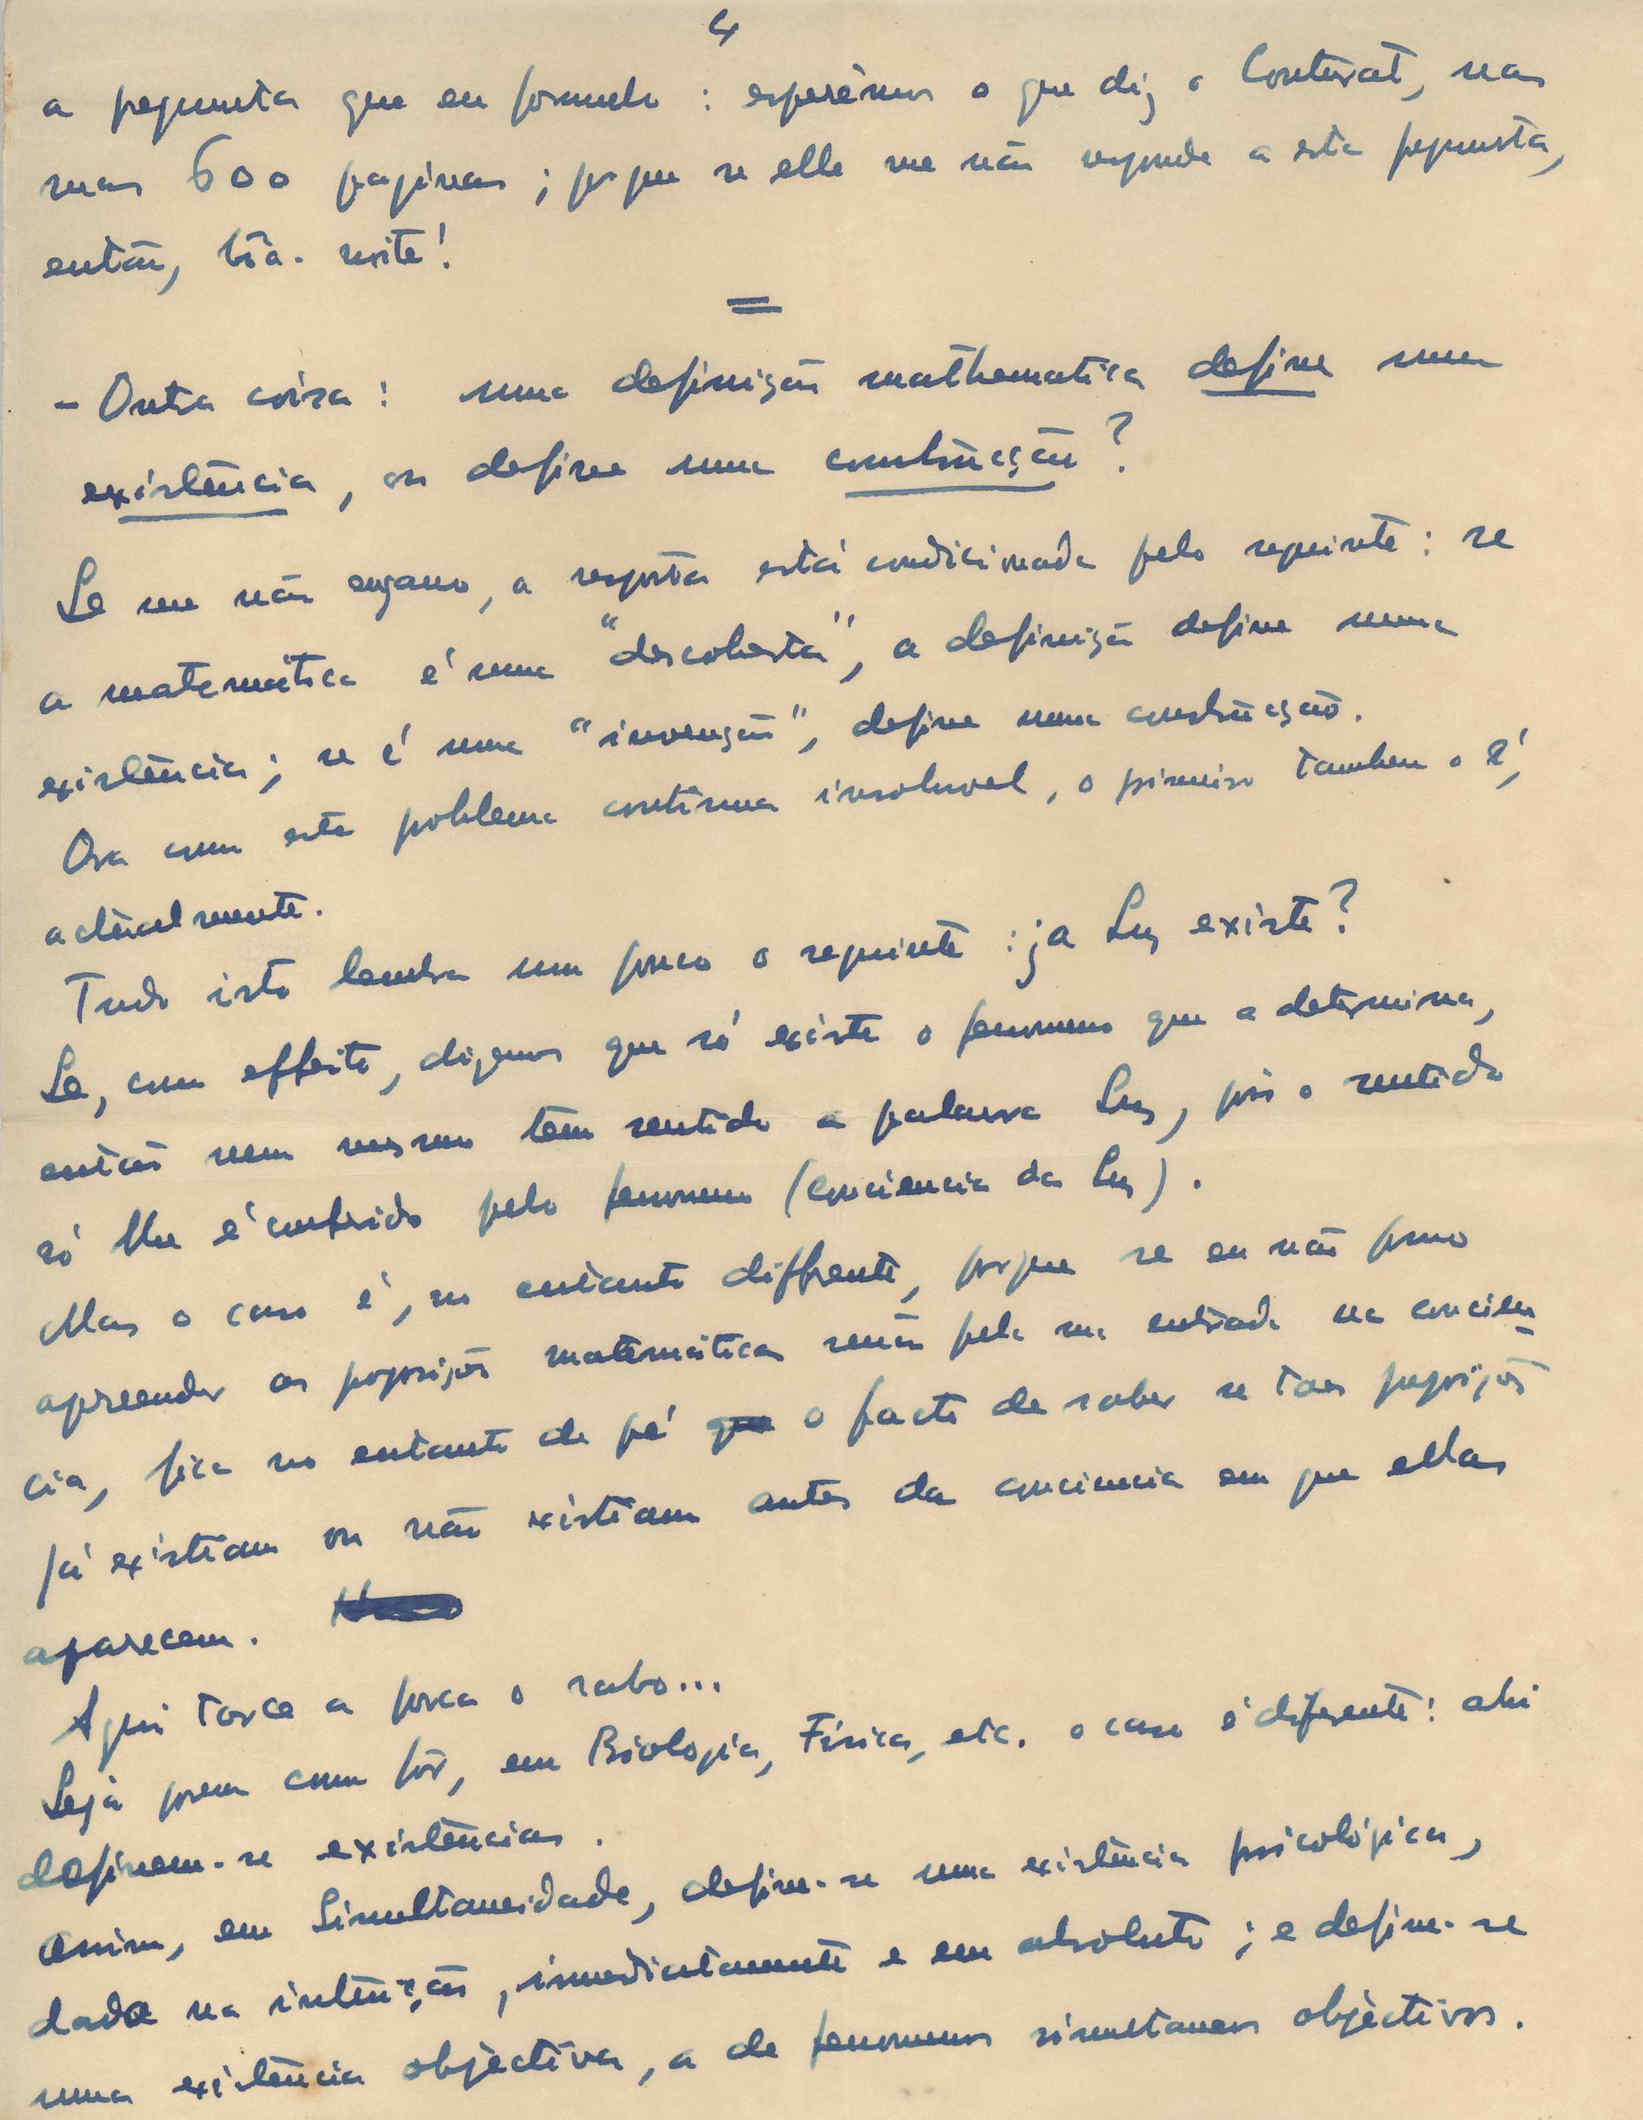 4
a pergunta que eu formulo : esperêmos o que diz o Couturat, nas
suas 600 paginas ; porque se elle me não responde a esta pergunta,
então, bôa-noite!
=
- Outra coisa : uma definição mathematica define uma
existência, ou define uma construcção ?
Se me não engano, a resposta está condicionada pelo seguinte : se
a matemática é uma "descoberta", a definição define uma
existência ; se é uma "invenção", define uma construcção.
Ora como este problema continua insoluvel, o primeiro tambem o é,
actualmente.
Tudo isto lembra um pouco o seguinte : ja a Luz existe ?
Se, com effeito, dizemos que só existe o fenomeno que a determina,
então nem mesmo tem sentido a palavra Luz, pois o sentido
só lhe é conferido pelo fenomeno (conciencia da Luz).
Mas o caso é, no entanto diffrente, porque se eu não posso
apreender as proposições matemáticas senão pela sua entrada na concien
cia, fica no entanto de pé que o facto de saber se taes proposições
já existiam ou não existiam antes da conciencia em que ellas
aparecem.
Aqui torce a porca o rabo...
Seja porem como fôr, em Biologia, Fisica, etc. o caso é diferente : ahi
definem-se existências.
Assim, em Simultaneidade, define-se uma existência psicológica,
dada na intuição, imediatamente e em absoluto ; e define-se
uma existência objectiva, a de fenomenos simultaneos objectivos.